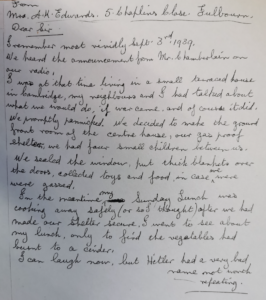 From
Mrs. A.K. Edwards. 5 Chaplins Close. Fulbourn.
Dear Sir
I remember most vividly Sept. 3rd 1939.
We heard the announcement from Mr. Chamberlain on
our radio,
I was at that time living in a small terraced house
in Cambridge, my neighbours and I had talked about
what we would do, if war came, and of course it did.
We promptly panicked. We decided to make the ground
front room of the centre house, our gas proof
shelter, we had four small children between us.
We sealed the window, put thick blankets over
the doors, collected toys and food in case we
were gassed.
In the meantime my Sunday Lunch was
cooking away safely (or so I thought) after we had
made our shelter secure, I went to see about
my lunch, only to find the vegetables had
burnt to a cinder.
I can laugh now, but Hitler had a very bad
name not worth
repeating.